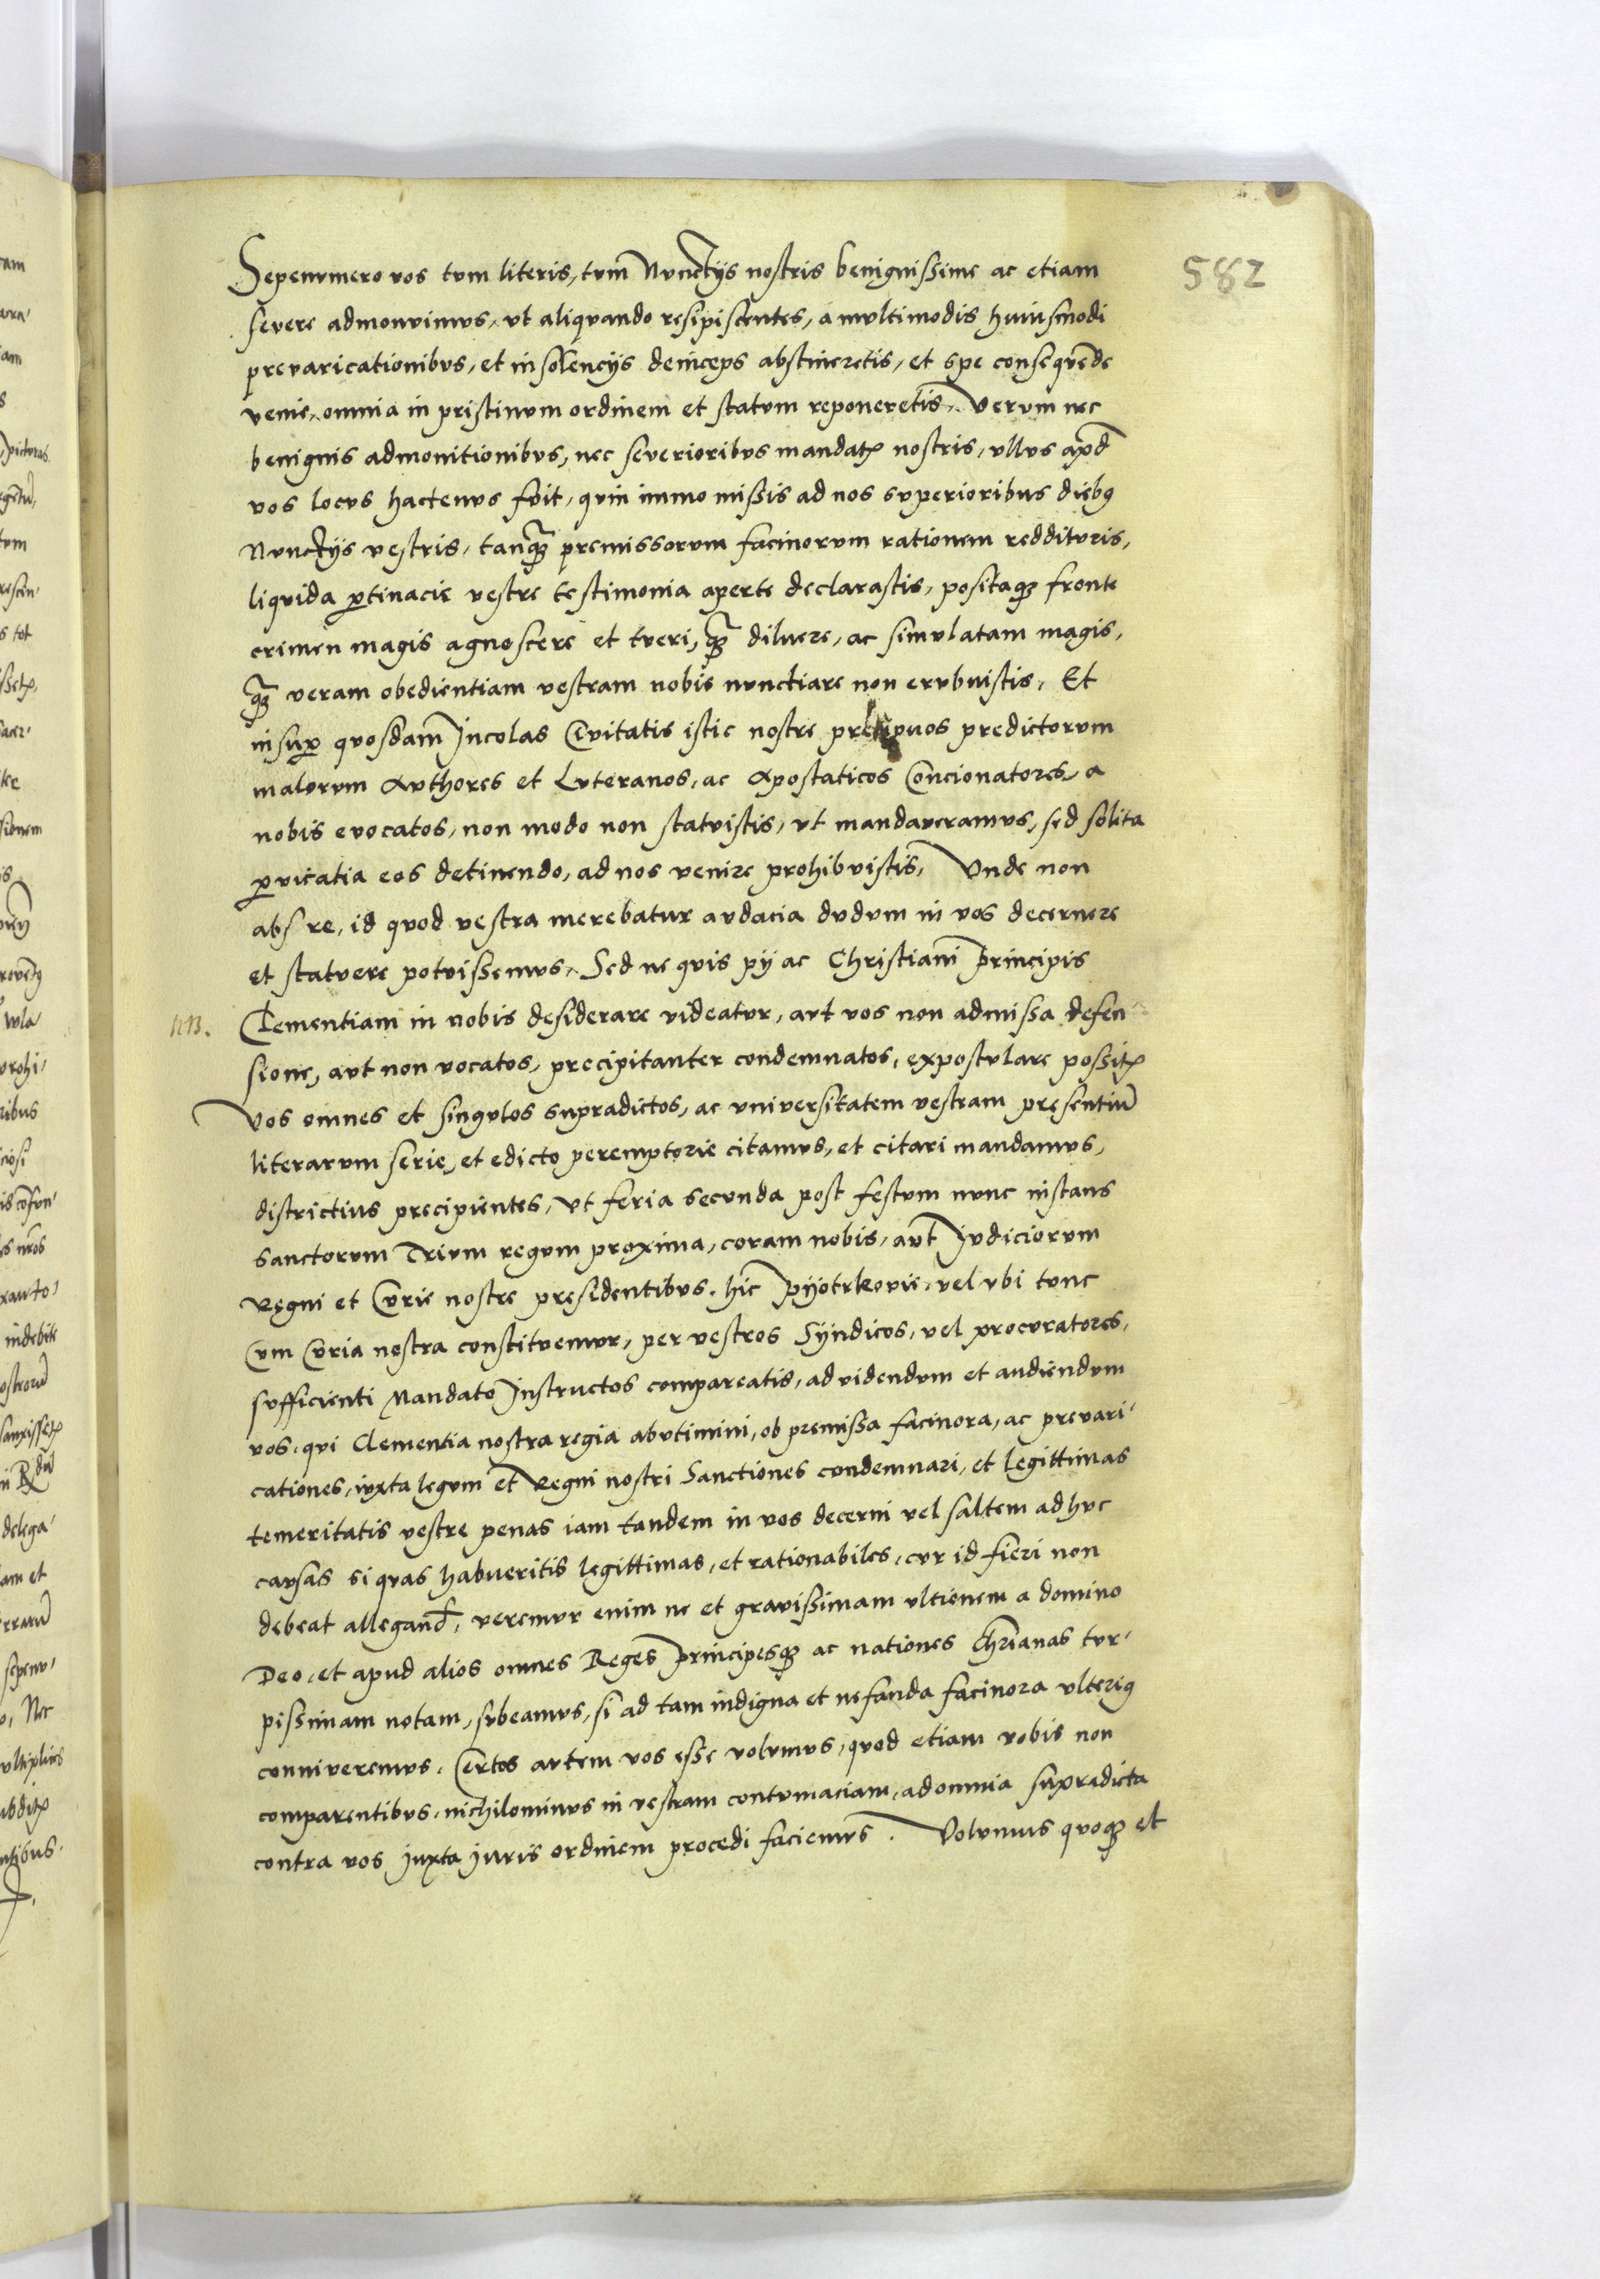 582
Sepenumero vos tvm literis, tvm Nvnctijs nostris benignissime ac etiam
severe admonvimvs, vt aliqvando resipiscentes, a mvltimodis huiusmodi
prevaricationibvs, et insolencijs deinceps abstineretis, et spe conseqvēde
venie, omnia in pristinvm ordinem et statvm reponeretis. Verum nec
benignis admonitionibvs, nec severioribvs mandatꝭ nostris, vllvs apd̄
vos locvs hactenvs fvit, qvin immo missis ad nos svperioribus diebꝯ
Nvnctijs vestris, tanqꝫ premissorvm facinorvm rationem redditvris,
liqvida ꝑtinacie vestre testimonia aperte declarastis, positaqꝫ fronte
crimen magis agnoscere et tveri, qꝫ dilvere, ac simvlatam magis,
qꝫ veram obedientiam vestram nobis nvnctiare non ervbvistis, Et
insuꝑ qvosdam Incolas Civitatis istic nostre precipvos predictorvm
malorvm Avthores et Lvteranos, ac Apostaticos Concionatores, a
nobis evocatos, non modo non statvistis, vt mandaveramvs, sed solita
ꝑvicatia eos detinendo, ad nos venire prohibvistis, Vnde non
abs re, id qvod vestra merebatur avdacia dvdvm in vos decernere
et statvere potvissemvs. Sed ne qvis pij ac Christiani principis
NB.
Clementiam in nobis desiderare videatvr, avt vos non admissa defen
sione, avt non vocatos, precipitanter condemnatos, expostvlare possitꝭ
Vos omnes et singvlos supradictos, ac vniversitatem vestram presentiū
literarvm serie, et edicto peremptorie citamvs, et citari mandamvs,
districtius precipientes, Vt feria secvnda post festvm nvnc instans
sanctorvm Trivm regvm proxima, coram nobis, avt Jvdiciorvm
Regni et Cvrie nostre presidentibvs, hic Pyotrkovie, vel vbi tvnc
Cvm Cvria nostra constitvemvr, per vestros Syndicos, vel procvratores,
svfficienti Mandato Instructos compareatis, ad videndvm et audiendvm
vos, qvi Clementia nostra regia abvtimini, ob premissa facinora, ac prevari-
cationes, ivxta legvm et Regni nostri Sanctiones condemnari, et legittimas
temeritatis vestre penas iam tandem in vos decerni vel saltem adhvc
cavsas si qvas habveritis legittimas, et rationabiles, cvr id fieri non
debeat allegand, veremvr enim ne et gravissimam vltionem a domino
Deo, et apud alios omnes Reges Principesqꝫ ac nationes Chrianas tvr-
pissimam notam, svbeamvs, si ad tam indigna et nefanda facinora vlteriꝯ
conniveremvs. Certos avtem vos esse volvmvs, qvod etiam vobis non
comparentibvs, nichilominvs in vestram contvmaciam, ad omnia supradicta
contra vos Juxta Juris ordinem procedi faciemvs. Volvmus qvoqꝫ et